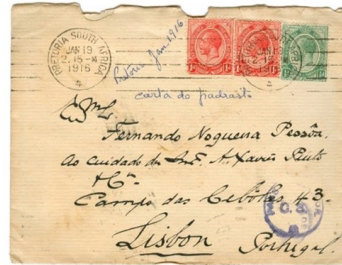 PRETORIA SOUTH AFRICA
JAN 19
2.15-M
1916
4
Pretoria Jan. 1916
carta do padrasto
Fernando Nogueira Pessôa,
ao cuidado de Snr. A. Xavier Pinto
& Cia
Campo das Cebolas 43
Lisbon
Portugal.